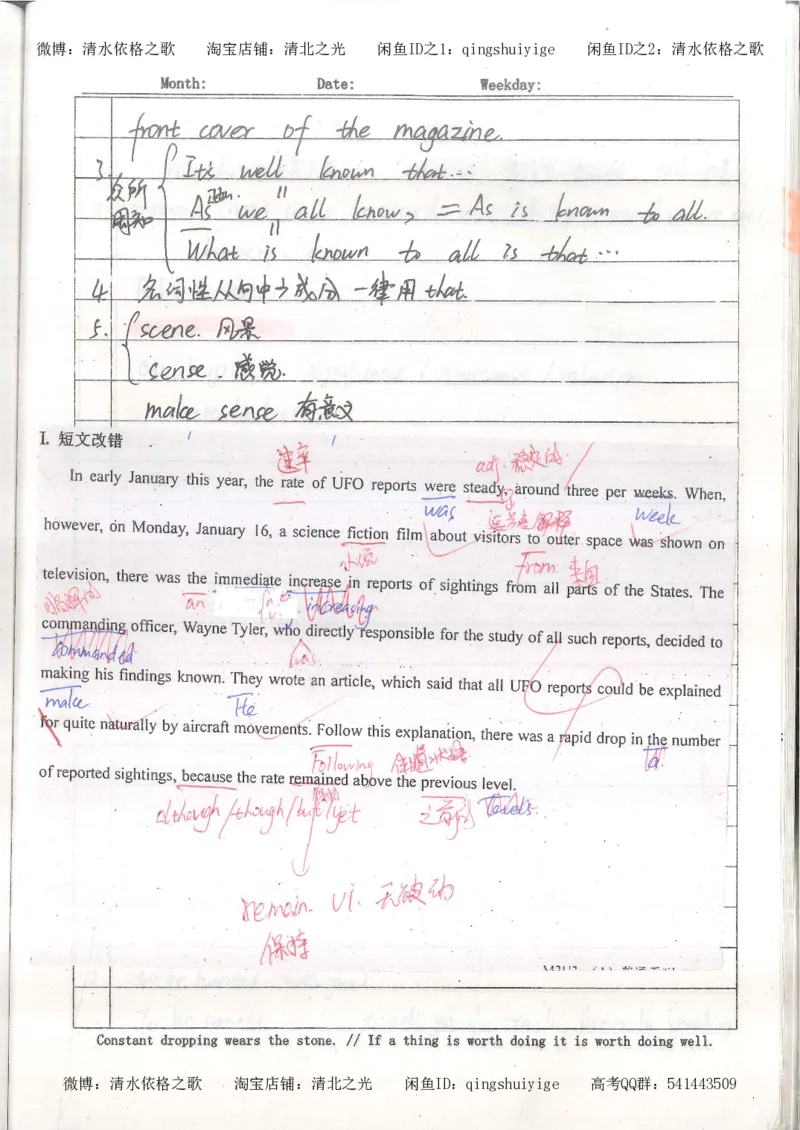 微博：清水依格之歌 淘宝店铺：清北之光 闲鱼ID之1：qingshuiyige 闲鱼ID之2：清水依格之歌
Month: Date: Weekday:
front cover of the magazine.
3. It's well known that...
众所周知
As we all know, = As is known to all.
What is known to all is that ...
4 名词性从句中少成分 一律用 that.
5. scene. 风景
sense. 感觉.
make sense 有意义
I. 短文改错
速率 adj. 稳定的.
In early January this year, the rate of UFO reports were steady, around three per weeks. When,
was week
however, on Monday, January 16, a science fiction film about visitors to outer space was shown on
小说 from 来自
television, there was the immediate increase in reports of sightings from all parts of the States. The
an increasing
commanding officer, Wayne Tyler, who directly responsible for the study of all such reports, decided to
commanded was
making his findings known. They wrote an article, which said that all UFO reports could be explained
make He
for quite naturally by aircraft movements. Follow this explanation, there was a rapid drop in the number
Following a
of reported sightings, because the rate remained above the previous level.
although/though/but/yet 之前的 levels.
remain. vi. 无被动
保持
Constant dropping wears the stone. // If a thing is worth doing it is worth doing well.
微博：清水依格之歌 淘宝店铺：清北之光 闲鱼ID：qingshuiyige 高考QQ群：541443509